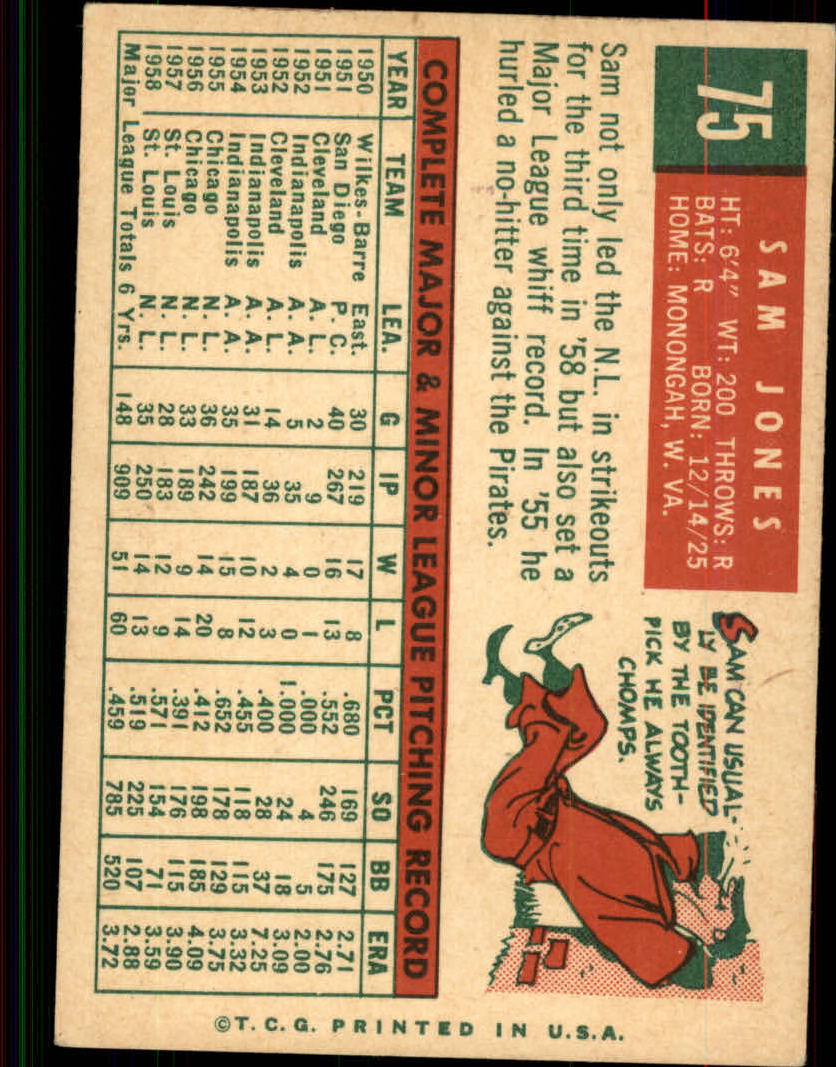 75
SAM JONES
HT: 6'4" WT: 200 THROWS: R
BATS: R BORN: 12/14/25
HOME: MONONGAH, W. VA.
Sam not only led the N.L. in strikeouts
for the third time in '58 but also set a
Major League whiff record. In '55 he
hurled a no-hitter against the Pirates.
SAM CAN USUAL-
LY BE IDENTIFIED
BY THE TOOTH-
PICK HE ALWAYS
CHOMPS.
COMPLETE MAJOR & MINOR LEAGUE PITCHING RECORD
YEAR TEAM LEA. G IP W L PCT SO BB ERA
1950 Wilkes-Barre East. 30 219 17 8 .680 169 127 2.71
1951 San Diego P. C. 40 267 16 13 .552 246 175 2.76
1951 Cleveland A. L. 2 9 0 1 .000 4 5 2.00
1952 Indianapolis A. A. 5 35 4 0 1.000 24 18 3.09
1952 Cleveland A. L. 14 36 2 3 .400 28 37 7.25
1953 Indianapolis A. A. 31 187 10 12 .455 118 115 3.32
1954 Indianapolis A. A. 35 199 15 8 .652 178 129 3.75
1955 Chicago N. L. 36 242 14 20 .412 198 185 4.09
1956 Chicago N. L. 33 189 9 14 .391 176 115 3.90
1957 St. Louis N. L. 28 183 12 9 .571 154 71 3.59
1958 St. Louis N. L. 35 250 14 13 .519 225 107 2.88
Major League Totals 6 Yrs. 148 909 51 60 .459 785 520 3.72
©T. C. G. PRINTED IN U.S.A.